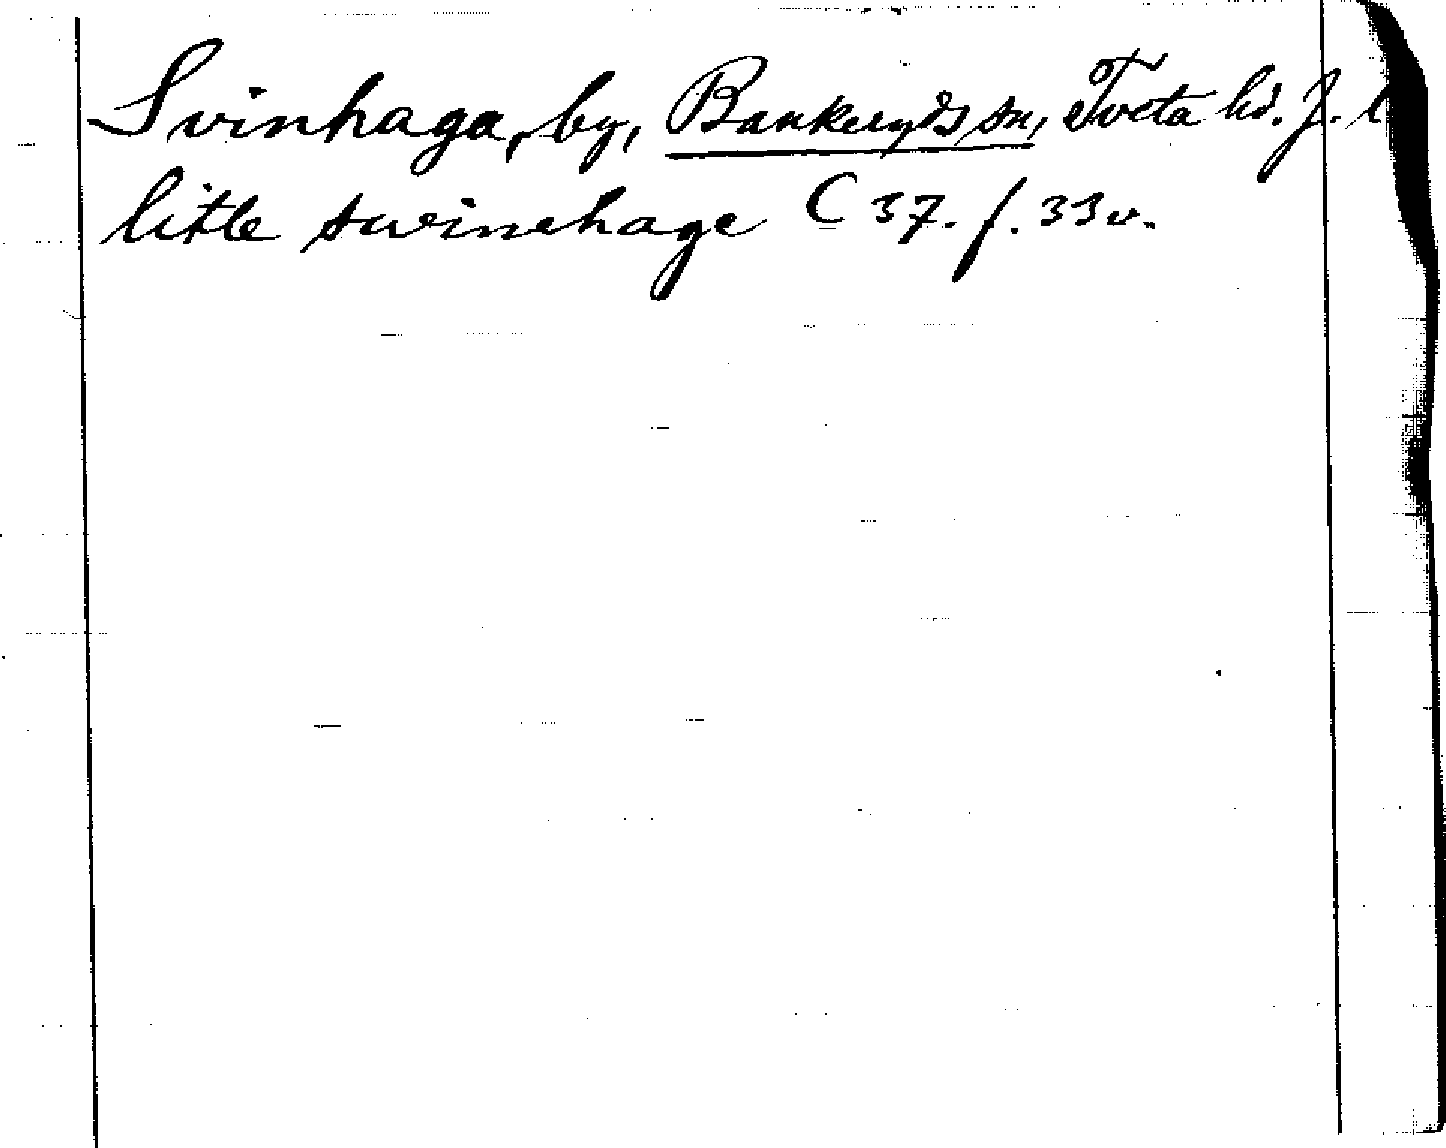 Svinhaga, by, Bankeryds sn, Tveta hd. J. l
litle swinehage C 37. f. 33v.